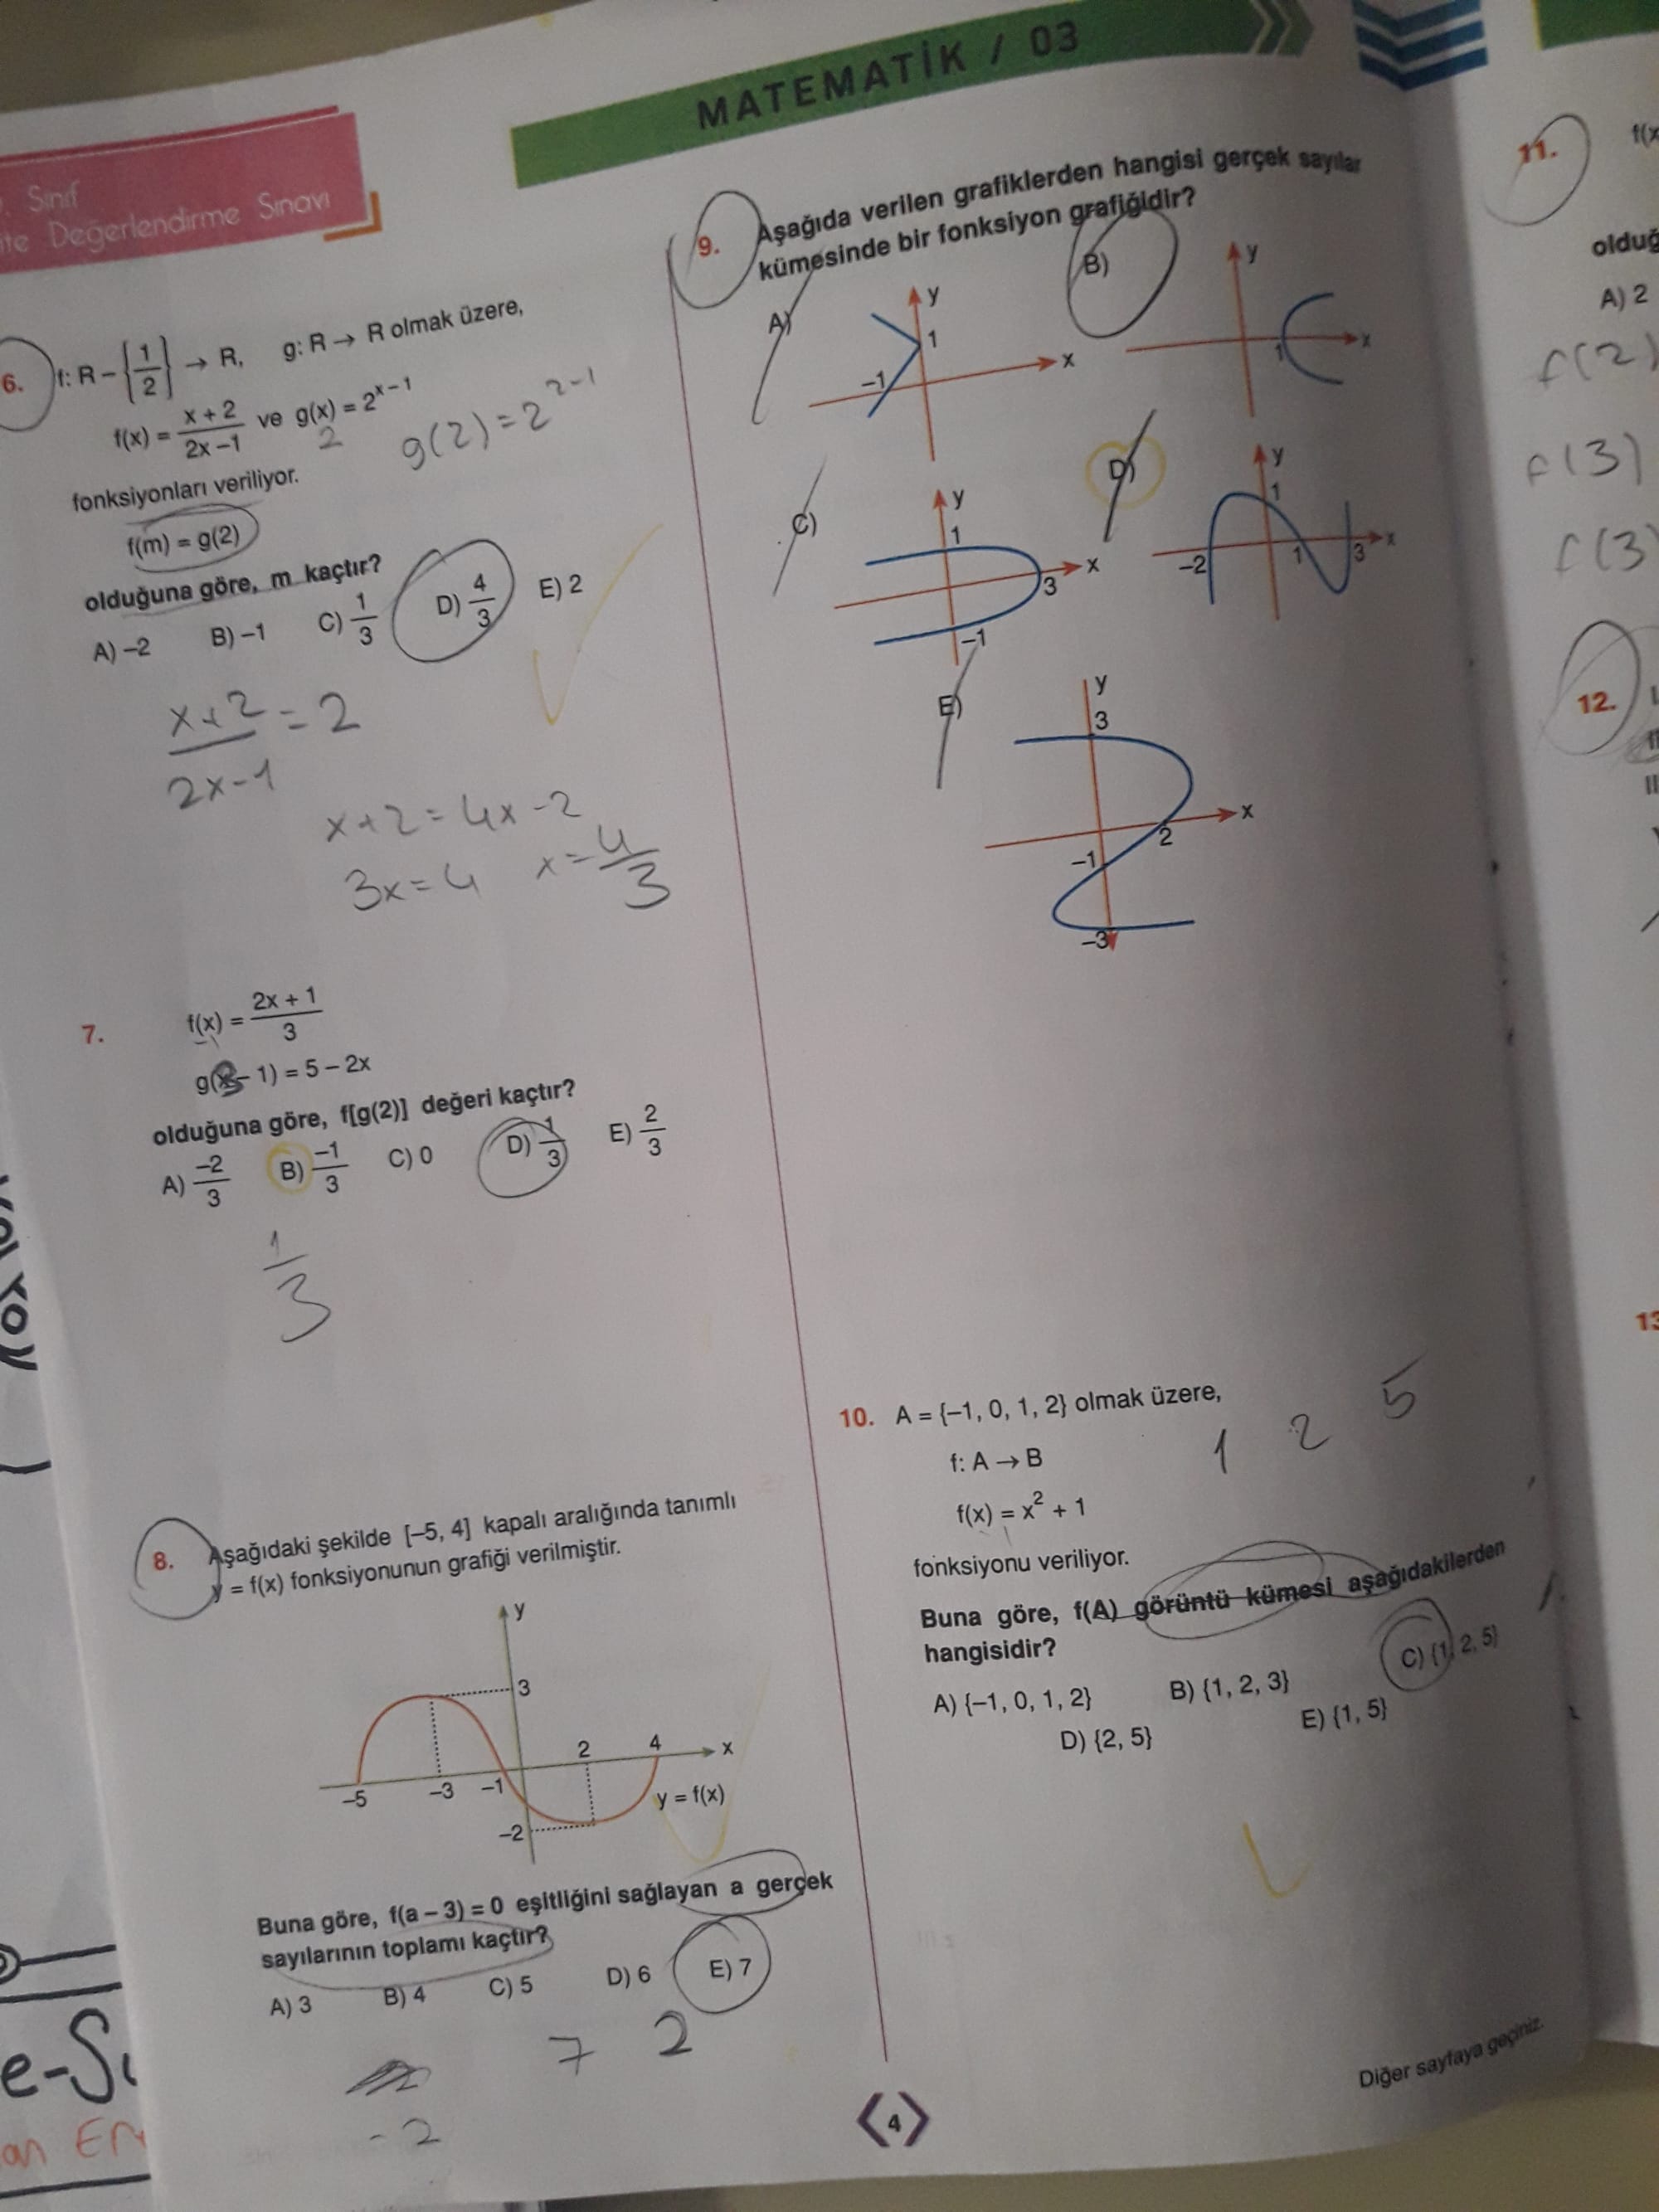 MATEMATİK / 03
Sınıf
Değerlendirme Sınavı
6. f: R – {1/2} → R, g: R → R olmak üzere,
f(x) = x + 2 / 2x – 1 ve g(x) = 2^x – 1
2
g(2) = 2^2-1
fonksiyonları veriliyor.
f(m) = g(2)
olduğuna göre, m kaçtır?
A) –2 B) –1 C) 1/3 D) 4/3 E) 2
x+2 / 2x-1 = 2
x+2 = 4x-2
3x=4 x=4/3
7. f(x) = 2x + 1 / 3
g(x – 1) = 5 – 2x
olduğuna göre, f[g(2)] değeri kaçtır?
A) –2/3 B) –1/3 C) 0 D) 1/3 E) 2/3
1/3
8. Aşağıdaki şekilde [–5, 4] kapalı aralığında tanımlı
y = f(x) fonksiyonunun grafiği verilmiştir.
y
3
2 4 x
–5 –3 –1
y = f(x)
–2
Buna göre, f(a – 3) = 0 eşitliğini sağlayan a gerçek
sayılarının toplamı kaçtır?
A) 3 B) 4 C) 5 D) 6 E) 7
7 2
-2
9. Aşağıda verilen grafiklerden hangisi gerçek sayılar
kümesinde bir fonksiyon grafiğidir?
A) y 1 –1 x
B) y 1 x
C) y 1 3 x –1
D) y 1 –2 1 3 x
E) y 3 2 x –1 –3
10. A = {–1, 0, 1, 2} olmak üzere,
1 2 5
f: A → B
f(x) = x² + 1
fonksiyonu veriliyor.
Buna göre, f(A) görüntü kümesi aşağıdakilerden
hangisidir?
A) {–1, 0, 1, 2} B) {1, 2, 3} C) {1, 2, 5}
D) {2, 5} E) {1, 5}
Diğer sayfaya geçiniz.
4
11. f(x
olduğ
A) 2
f(2)
f(3)
f(3)
12.
13
e-S
an Er